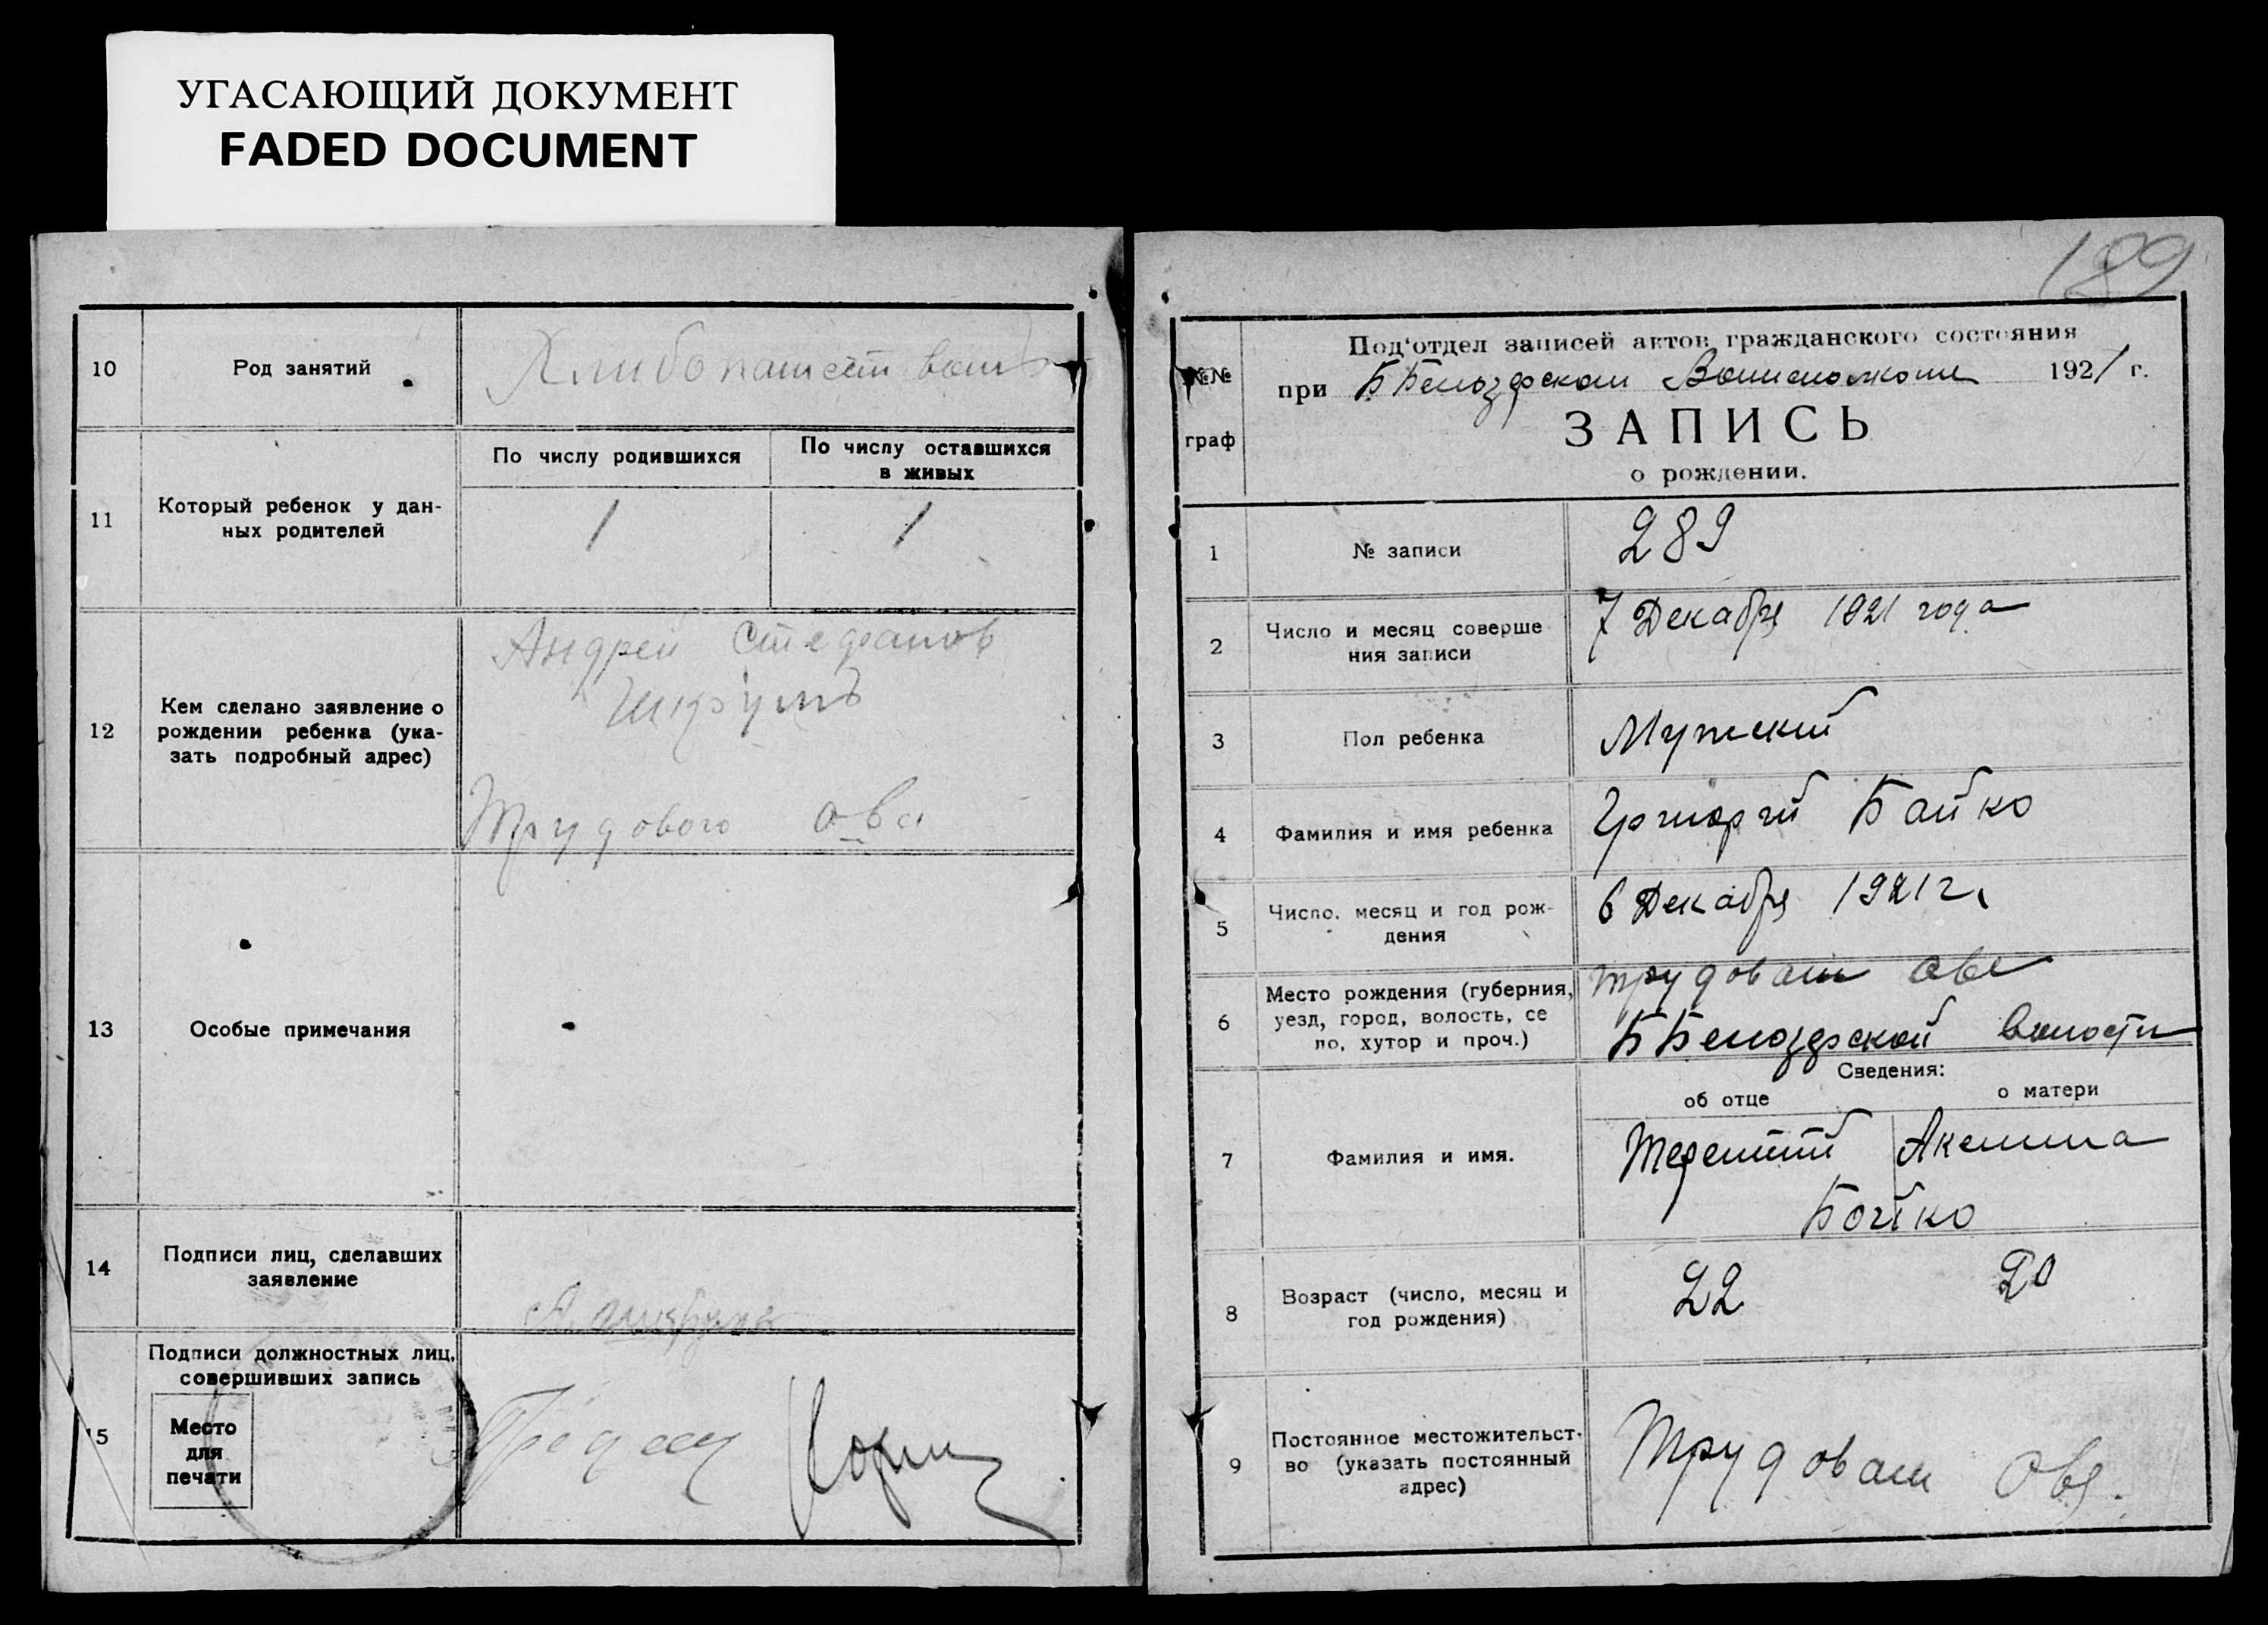 УГАСАЮЩИЙ ДОКУМЕНТ
FADED DOCUMENT
10
Род занятий
Хлибопашеством
11
Который ребенок у дан-
ных родителей
По числу родившихся
По числу оставшихся
в живых
1
1
12
Кем сделано заявление о
рождении ребенка (ука-
зать подробный адрес)
Андрей Стефанов
Шкрумъ
Трудового о-ва
13
Особые примечания
14
Подписи лиц, сделавших
заявление
А.
15
Подписи должностных лиц,
совершивших запись
Место
для
печати
189
№№
граф
Под'отдел записей актов гражданского состояния
при Б Белозерском Волисполкоме 1921 г.
ЗАПИСЬ
о рождении.
1
№ записи
289
2
Число и месяц соверше
ния записи
7 Декабря 1921 года
3
Пол ребенка
Мужский
4
Фамилия и имя ребенка
Григорий Бойко
5
Число, месяц и год рож-
дения
6 Декабря 1921 г.
6
Место рождения (губерния,
уезд, город, волость, се
ло, хутор и проч.)
Трудовом ове
Б Белозерской волости
Сведения:
об отце
о матери
7
Фамилия и имя.
Терентий Аксинна
Бойко
8
Возраст (число, месяц и
год рождения)
22
20
9
Постоянное местожительст-
во (указать постоянный
адрес)
Трудовом Ове.